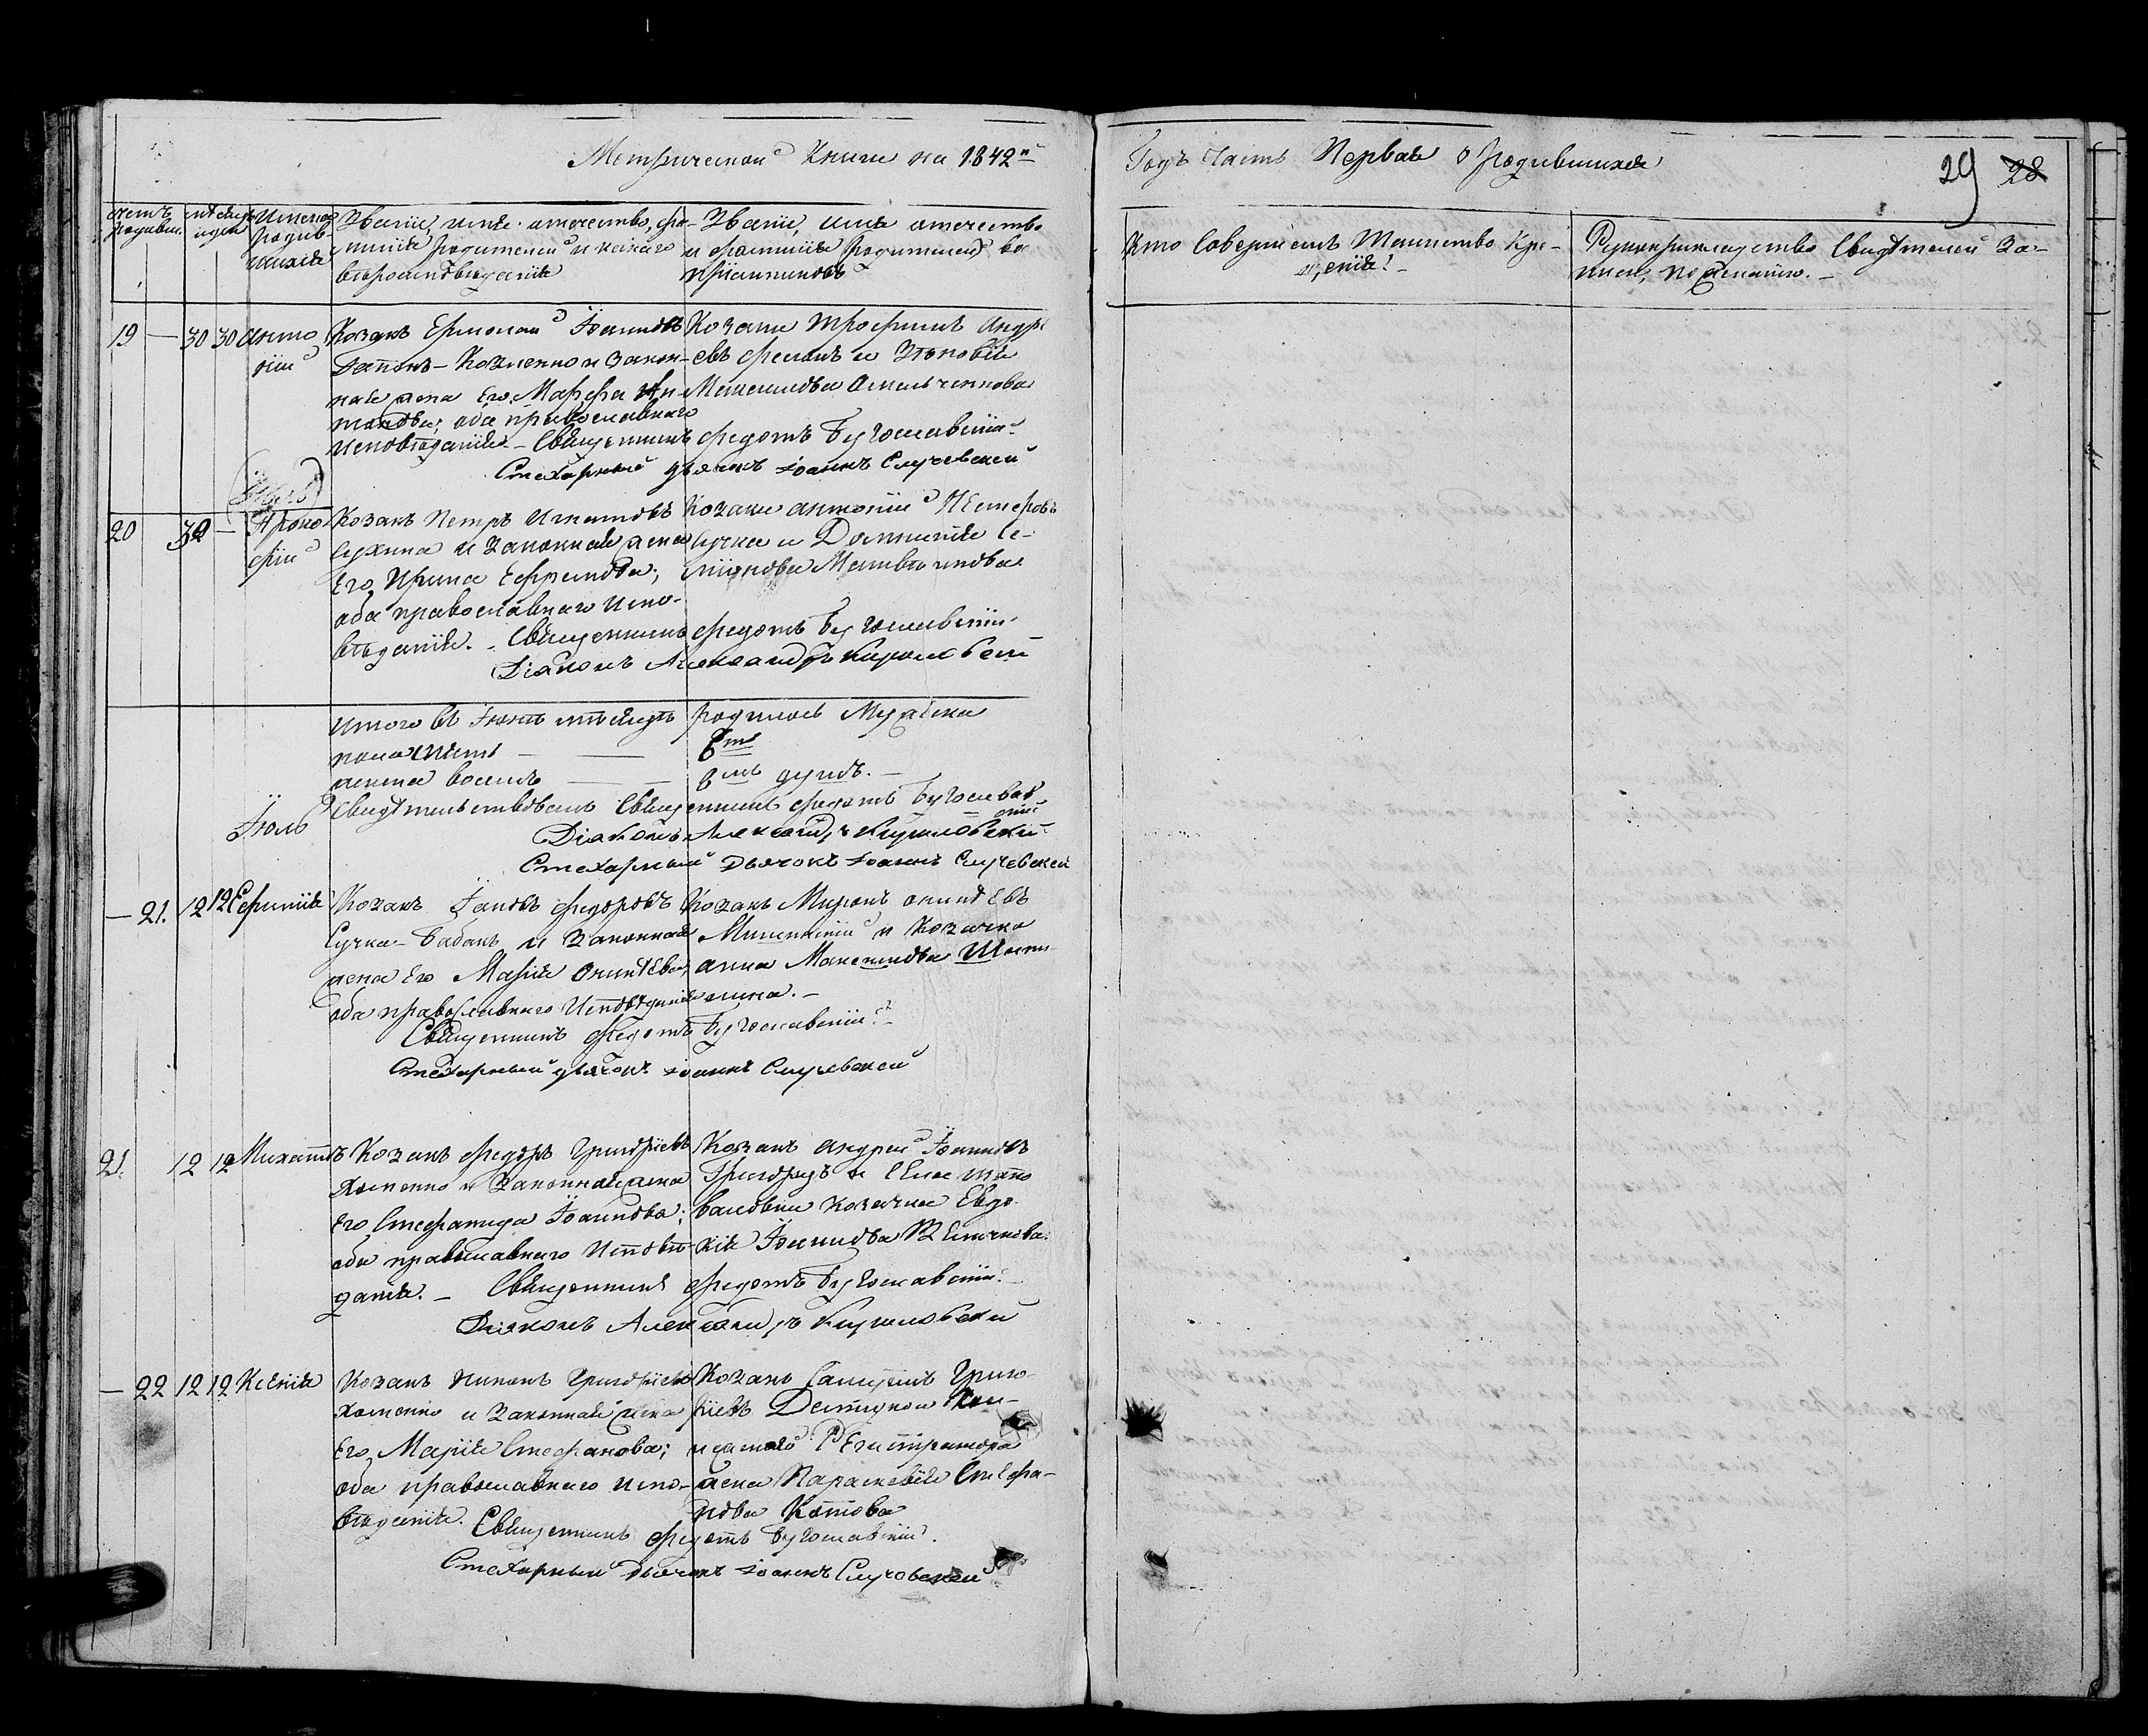 Метрической Книги на 1842й
Годъ Часть Первая о Родившихся
29 28
Счетъ родивш.
мѣсяцъ и день
Имена родив-
шихся
Званіе, имя, отчество, фа-
миліи родителей и какого
вѣроисповѣданія
Званіе, имя отчество
и фамилія родителей во
пріемниковъ
Кто Совершалъ Таинство Кре-
щенія?
Рукоприкладство Свидѣтелей За-
писи, по желанію.
19 — 30 30 Анто
ній
Козакъ Ермолай Іоанновъ
Гапонъ - и закон-
ная жена Его, Марфа Ан
тонова; оба православнаго
исповѣданія.
Козаки Трофимъ Андре
евъ и Зѣновія
Максимова Омельченкова
Священникъ Федотъ Богославскій
Стихарный дьячекъ Іоаннъ Случевскій
20 30 — Проко
фій
Козакъ Петръ Игнатовъ
Сухина и Законная жена
Его, Ирина Ефремова;
оба православнаго испо-
вѣданія.
Козаки Антоній Нестеровъ
Сучка и Домникія Се-
міонова
Священникъ Федотъ Богославскій
Діаконъ Александръ Кириловскій
Итого въ Іюнѣ мѣсяцѣ родилось Мужеска
пола шесть — 6ть
женска восемь — 8мь душъ. —
Свидѣтельствовалъ Священникъ Федотъ Богославскій
Діаконъ Александръ Кириловскій
Стихарный Дьячокъ Іоаннъ Случевскій
Іюль
— 21. 12 12 Ефимія
Козакъ Іаковъ Федоровъ
Сучка-Бабакъ и Законная
жена Его Марія
оба православнаго Исповѣданія
Козакъ Миронъ
и Козачка
Анна Максимова
Священникъ Федотъ Богославскій
Стихарный дьячокъ Іоаннъ Случевскій
21. 12 12 Михаилъ
Козакъ Федоръ Григоріевъ
Хоменко и Законная жена
Его Стефанида Іоаннова;
оба православнаго Исповѣ-
данія. —
Козакъ Андрей Іоанновъ
и
козачка Евдо-
кія Іоаннова
Священникъ Федотъ Богославскій
Діаконъ Александръ Кириловскій
— 22 12 12 Ксенія
Козакъ Никонъ Григоріевъ
Хоменко и Законная жена
Его, Марія Стефанова;
оба православнаго испо-
вѣданія.
Козакъ Григо
ріевъ
Регистратора
жена Параскевія Стефа-
нова Котова
Священникъ Федотъ Богославскій.
Стихарный Дьячекъ Іоаннъ Случевскій